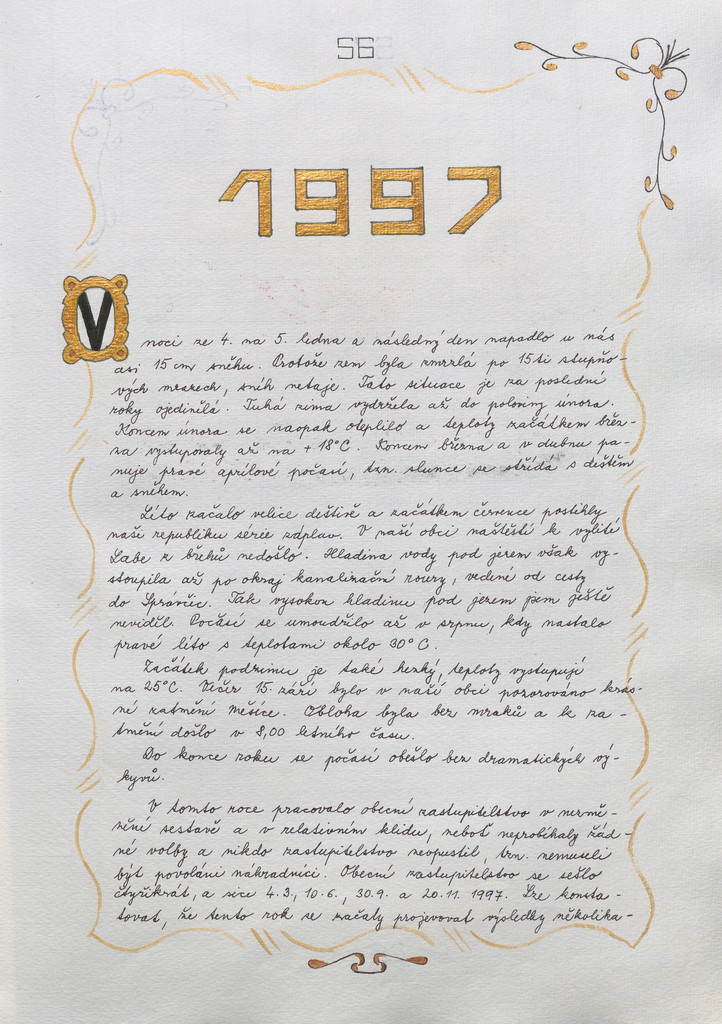 56
1997
V noci ze 4. na 5. ledna a následný den napadlo u nás
asi 15 cm sněhu. Protože zem byla zmrzlá po 15ti stupňo-
vých mrazech, sníh netaje. Tato situace je za poslední
roky ojedinělá. Tuhá zima vydržela až do poloviny února.
Koncem února se naopak oteplilo a teploty začátkem břez-
na vystupovaly až na + 18°C. Koncem března a v dubnu pa-
nuje pravé aprílové počasí, tzn. slunce se střídá s deštěm
a sněhem.
Léto začalo velice deštivě a začátkem července postihly
naši republiku série záplav. V naší obci naštěstí k vylití
Labe z břehů nedošlo. Hladina vody pod jezem však vy-
stoupila až po okraj kanalizační roury, vedené od cesty
do Správčic. Tak vysokou hladinu pod jezem jsem ještě
neviděl. Počasí se umoudřilo až v srpnu, kdy nastalo
pravé léto s teplotami okolo 30°C.
Začátek podzimu je také hezký, teploty vystupují
na 25°C. Večer 15. září bylo v naší obci pozorováno krás-
né zatmění Měsíce. Obloha byla bez mraků a k za-
tmění došlo v 8,00 letního času.
Do konce roku se počasí obešlo bez dramatických vý-
kyvů.
V tomto roce pracovalo obecní zastupitelstvo v nezmě-
něné sestavě a v relativním klidu, neboť neprobíhaly žád-
né volby a nikdo zastupitelstvo neopustil, tzn. nemuseli
být povoláni náhradníci. Obecní zastupitelstvo se sešlo
čtyřikrát, a sice 4.3., 10.6., 30.9. a 20.11. 1997. Lze konsta-
tovat, že tento rok se začaly projevovat výsledky několika-